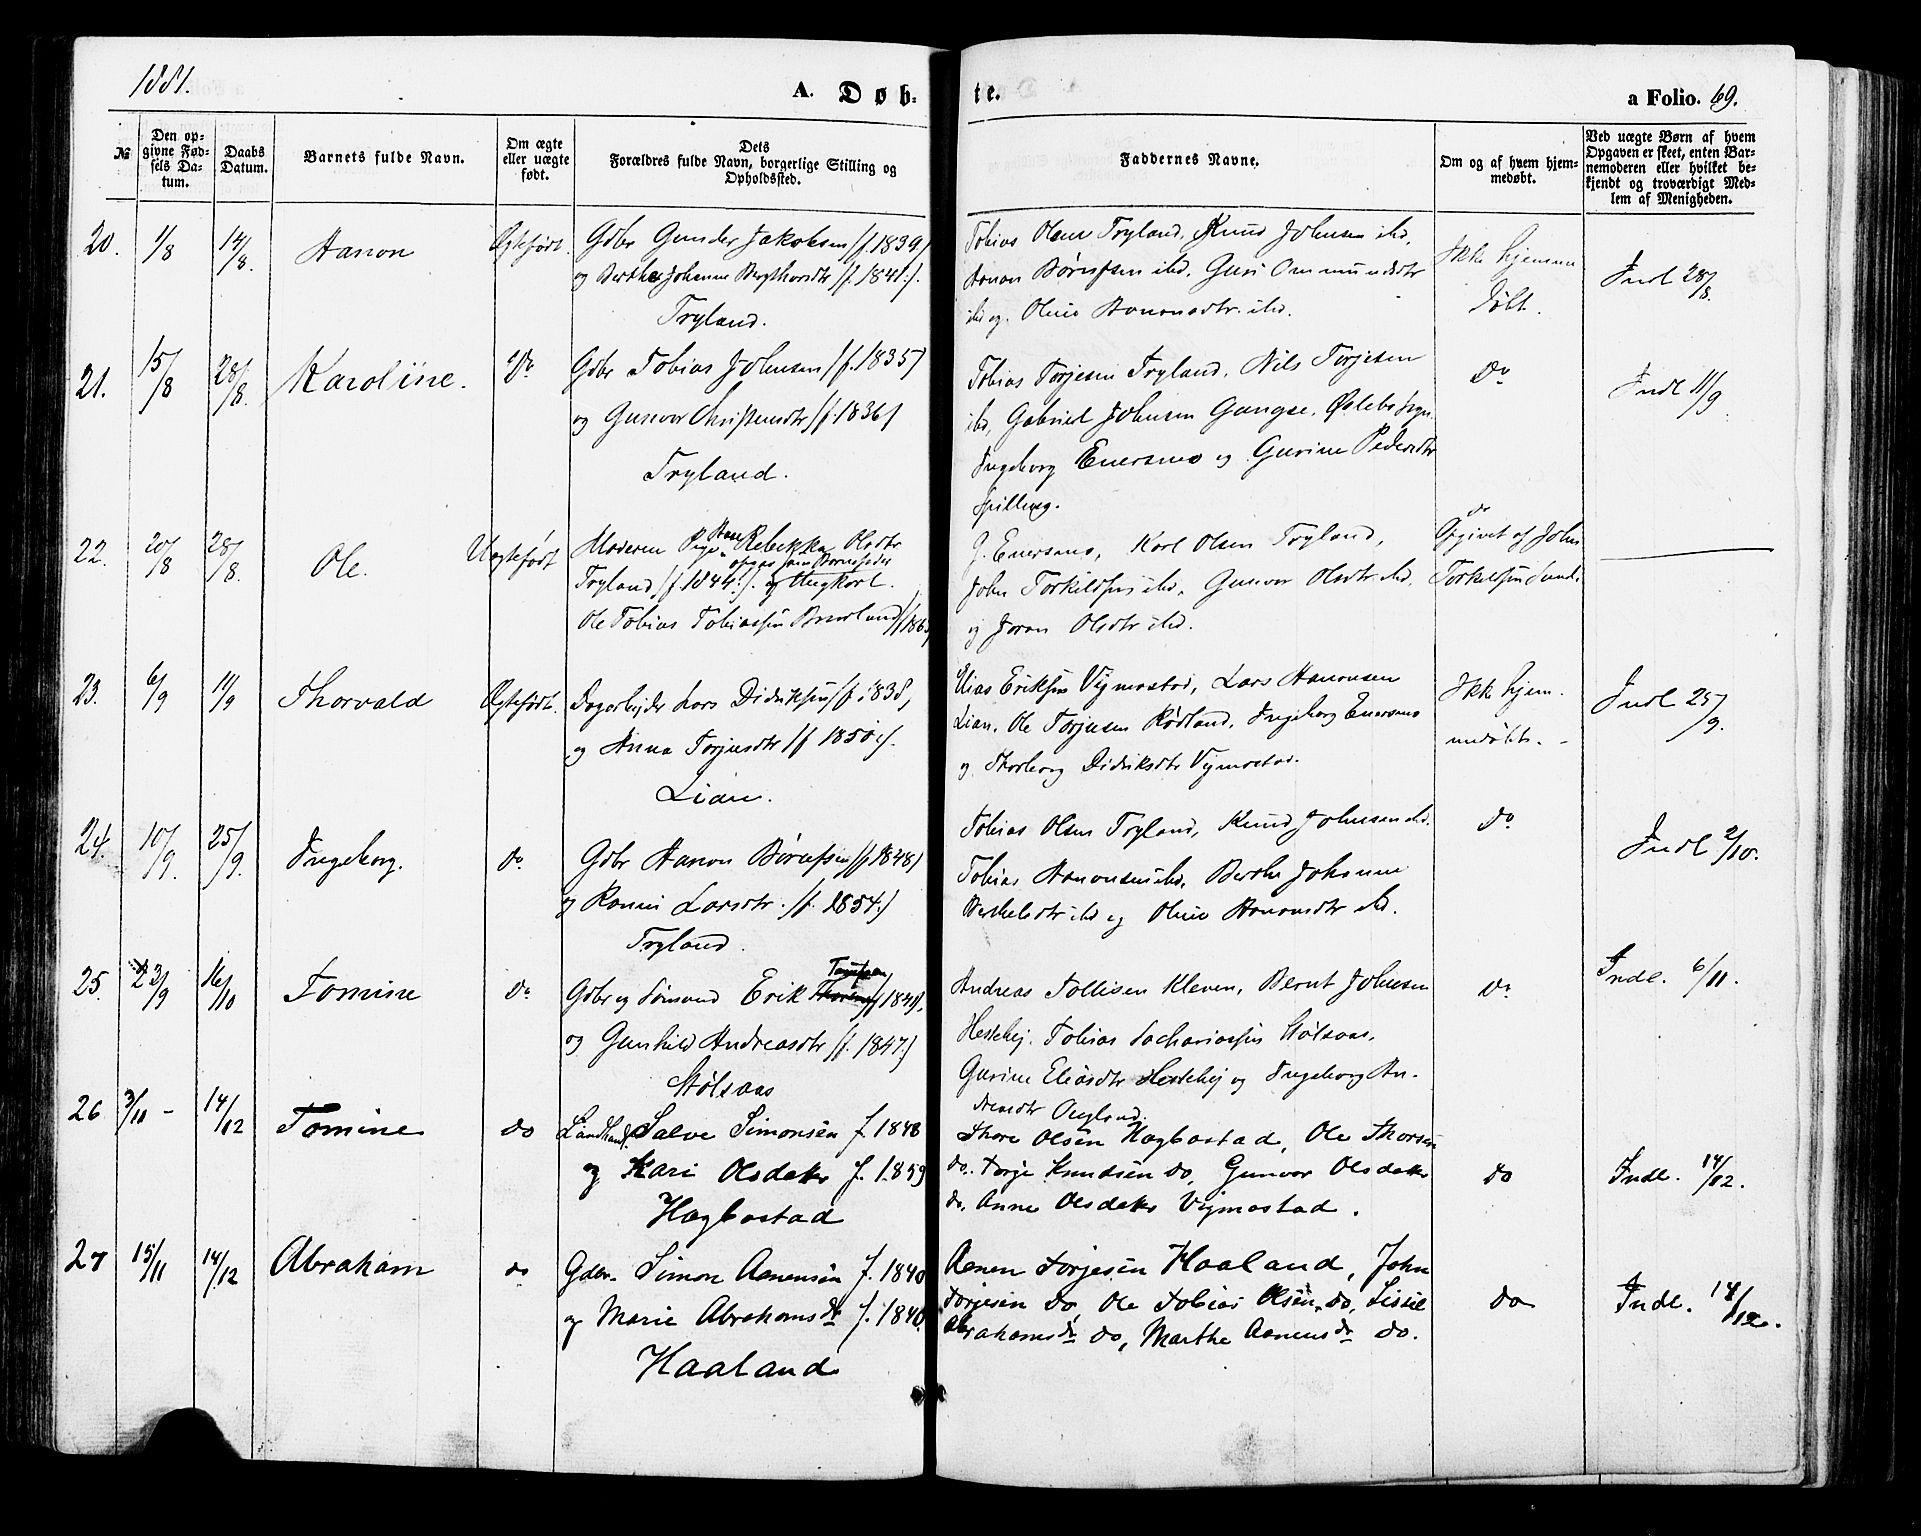 1881.
A. Døb-
te.
a Folio. 69.
№
Den op-
givne Fød-
sels Da-
tum.
Daabs
Datum.
Barnets fulde Navn.
Om ægte
eller uægte
født.
Dets
Forældres fulde Navn, borgerlige Stilling og
Opholdssted.
Faddernes Navne.
Om og af hvem hjem-
medøbt.
Ved uægte Børn af hvem
Opgaven er skeet, enten Bar-
nemoderen eller hvilket be-
kjendt og troværdigt Med-
lem af Menigheden.
20. 1/8 14/8. Hanon Ægtefødt. Gdbr Gunder Jakobsen (f. 1839)
og Berthe Johanne (f. 1841.).
Tryland.
Tobias Olsen Tryland, Knud Johnsen ibd,
Hanon ibd, Guri Ommundsdtr
ibd og Oline Hanonsdtr. ibd.
Ikke hjemme
døbt.
Indl 28/8.
21. 15/8 28/8. Karoline. Do Gdbr Tobias Johnsen (f. 1835)
og Gunvor Christensdtr (f. 1836)
Tryland.
Tobias Torjesen Tryland, Nils Torjesen
ibd, Gabriel Johnsen Øslebø Sogn.
Ingeborg Enersmo og Gurine Pedersdtr
Spilling.
Do
Indl 11/9
22. 20/8 28/8. Ole. Uægtefødt Moderen Pige Rebekka Olsdtr
Tryland (f. 1844.). og Ungkarl
opgav som Barnefader
Ole Tobias Tobiassen
G. Enersmo, Karl Olsen Tryland,
John Torkildsen ibd, Gunvor Olsdtr ibd,
og Joran Olsdtr ibd.
do
Opgivet af John
Torkildsen
23. 6/9 11/9 Thorvald Ægtefødt. Dagarbejder Lars Didriksen (f. 1838,
og Anna Torjusdtr (f. 1850.).
Lian.
Elias Eriksen Vigmostad, Lars Hanonsen
Lian, Ole Torjusen Rødland, Ingeborg Enersmo
og Thorborg Didriksdtr Vigmostad.
Ikke hjem-
medøbt. -
Indl 25/9.
24. 10/9. 25/9. Ingeborg. do Gdbr Hanon (f. 1848)
og Larsdtr. (f. 1854.)
Tryland.
Tobias Olsen Tryland, Knud Johnsen ibd.
Tobias Hanonsen ibd, Berthe Johanne
ibd og Oline Hanonsdtr ibd.
Do
Indl 2/10.
25. 23/9 16/10 Tomine Do Gdbr og Sømand Erik
og Gunhild Andreasdtr (f. 1847.)
Stølsaas
Andreas Tollisen Kleven, Bernt Johnsen
Hestehej. Tobias Sachariassen Stølsaas,
Gurine Eliasdtr Hestehej og Ingeborg An-
dreasdtr
Do
Indl. 6/11.
26 3/11 - 14/12 Tomine do Landhand. Salve Simonsen f. 1848
og Kari Olsdatr f. 1859
Hægbostad
Thore Olsen Hægbostad, Ole Thorsen
do. Torje Knudsen do, Gunvor Olsdatr
do. Anne Olsdatr Vigmostad.
do
Indl. 14/12.
27 15/11 14/12 Abraham do Gdbr. Simon Aanensen f. 1840
og Marie Abrahamsdr f. 1840.
Haaland
Aanen Torjesen Haaland, John
Torjesen do, Ole Tobias Olsen do, Sissel
Abrahamsdr do, Marthe Aanensdr do.
do
Indl. 14/12.